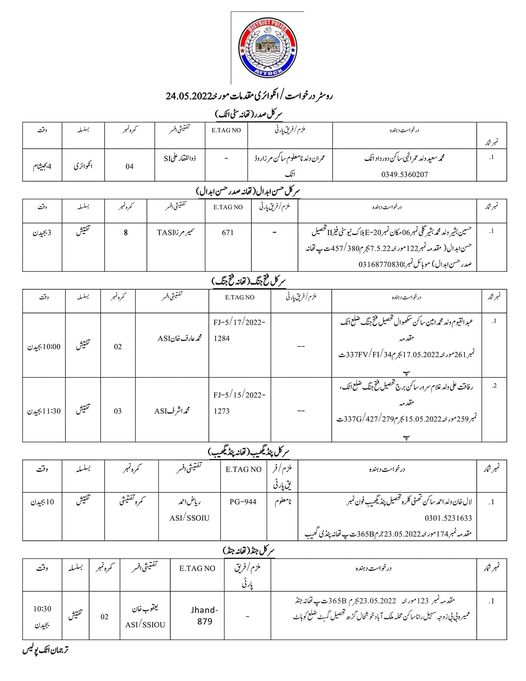 DISTRICT POLICE
ATTOCK
روسٹر درخواست / انکوائری مقدمات مورخہ 24.05.2022
سرکل صدر (تھانہ سٹی اٹک)
نمبر شمار درخواست دہندہ ملزم / فریق پارٹی E.TAG NO تفتیشی افسر کمرہ نمبر بسلسلہ وقت
1. محمد سعید ولد عمر الٰہی ساکن دورداد اٹک عمران ولد نامعلوم ساکن مرزا روڈ - ذوالفقار علی SI 04 انکوائری 4 بجے شام
0349.5360207 اٹک
سرکل حسن ابدال (تھانہ صدر حسن ابدال)
نمبر شمار درخواست دہندہ ملزم / فریق پارٹی E.TAG NO تفتیشی افسر کمرہ نمبر بسلسلہ وقت
1. حسنین بشیر ولد محمد بشیر گلی نمبر 06 مکان نمبر E-20 بلاک نیو سٹی فیز II تحصیل - 671 سمیر مرزا TASI 8 تفتیش 3 بجے دن
حسن ابدال (مقدمہ نمبر 122 مورخہ 7.5.22 بجرم 457/380 ت پ تھانہ
صدر حسن ابدال) موبائل نمبر: 03168770830
سرکل فتح جنگ (تھانہ فتح جنگ)
نمبر شمار درخواست دہندہ ملزم / فریق پارٹی E.TAG NO تفتیشی افسر کمرہ نمبر بسلسلہ وقت
1. عبدالقیوم ولد محمد امین ساکن سکھوال تحصیل فتح جنگ ضلع اٹک -- FJ-5/17/2022-1284 محمد عارف خان ASI 02 تفتیش 10:00 بجے دن
مقدمہ
نمبر 261 مورخہ 17.05.2022 بجرم 337FV/FI/34 ت
پ
2. رفاقت علی ولد غلام سرور ساکن برج تحصیل فتح جنگ ضلع اٹک، -- FJ-5/15/2022-1273 محمد اشرف ASI 03 تفتیش 11:30 بجے دن
مقدمہ
نمبر 259 مورخہ 15.05.2022 بجرم 337G/427/279 ت
پ
سرکل پنڈی گھیب (تھانہ پنڈی گھیب)
نمبر شمار درخواست دہندہ ملزم / فریق پارٹی E.TAG NO تفتیشی افسر کمرہ نمبر بسلسلہ وقت
1. لال خان ولد احمد ساکن تحصیل پنڈی گھیب فون نمبر نامعلوم PG-944 ریاض احمد ASI/SSOIU کمرہ تفتیشی تفتیش 10 بجے دن
0301.5231633
مقدمہ نمبر 174 مورخہ 23.05.2022 جرم 365B ت پ تھانہ پنڈی گھیب
سرکل جنڈ (تھانہ جنڈ)
نمبر شمار درخواست دہندہ ملزم / فریق پارٹی E.TAG NO تفتیشی افسر کمرہ نمبر بسلسلہ وقت
1. مقدمہ نمبر 123 مورخہ 23.05.2022 بجرم 365B ت پ تھانہ جنڈ - Jhand-879 یعقوب خان ASI/SSIOU 02 تفتیش 10:30 بجے دن
بی بی زوجہ سہیل رانا ساکن محلہ ملک آباد خوشحال گڑھ تحصیل گمبٹ ضلع کوہاٹ
ترجمان اٹک پولیس